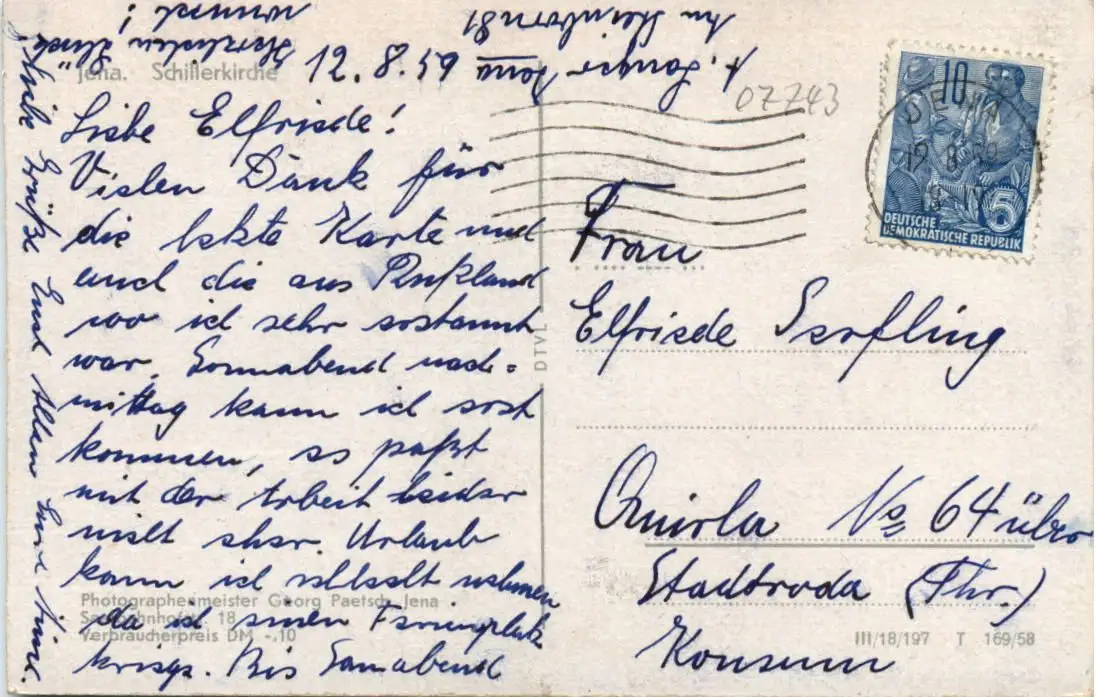 Jena. Schillerkirche
12.8.59
Liebe Elfriede!
Vielen Dank für
die letzte Karte und
auch die aus Rußland
wo ich sehr erstaunt
war. Sonnabend nach=
mittag kann ich erst
kommen, es paßt
mit der Arbeit leider
nicht eher. Urlaub
kann ich vielleicht nehmen
da ich einen Ferienplatz
kriege. Bis Sonnabend
Liebe Grüße Euch Allen Eure
Herzlichen
wünscht
!
Jena
Am Steinborn 81
Photographenmeister Georg Paetsch, Jena
Saalbahnhofstr. 18
Verbraucherpreis DM -.10
DTVL
07743
10
5
DEUTSCHE
DEMOKRATISCHE REPUBLIK
JENA
Frau
Elfriede Serfling
Quirla No 64 über
Stadtroda (Thr.)
Konsum
III/18/197 T 169/58